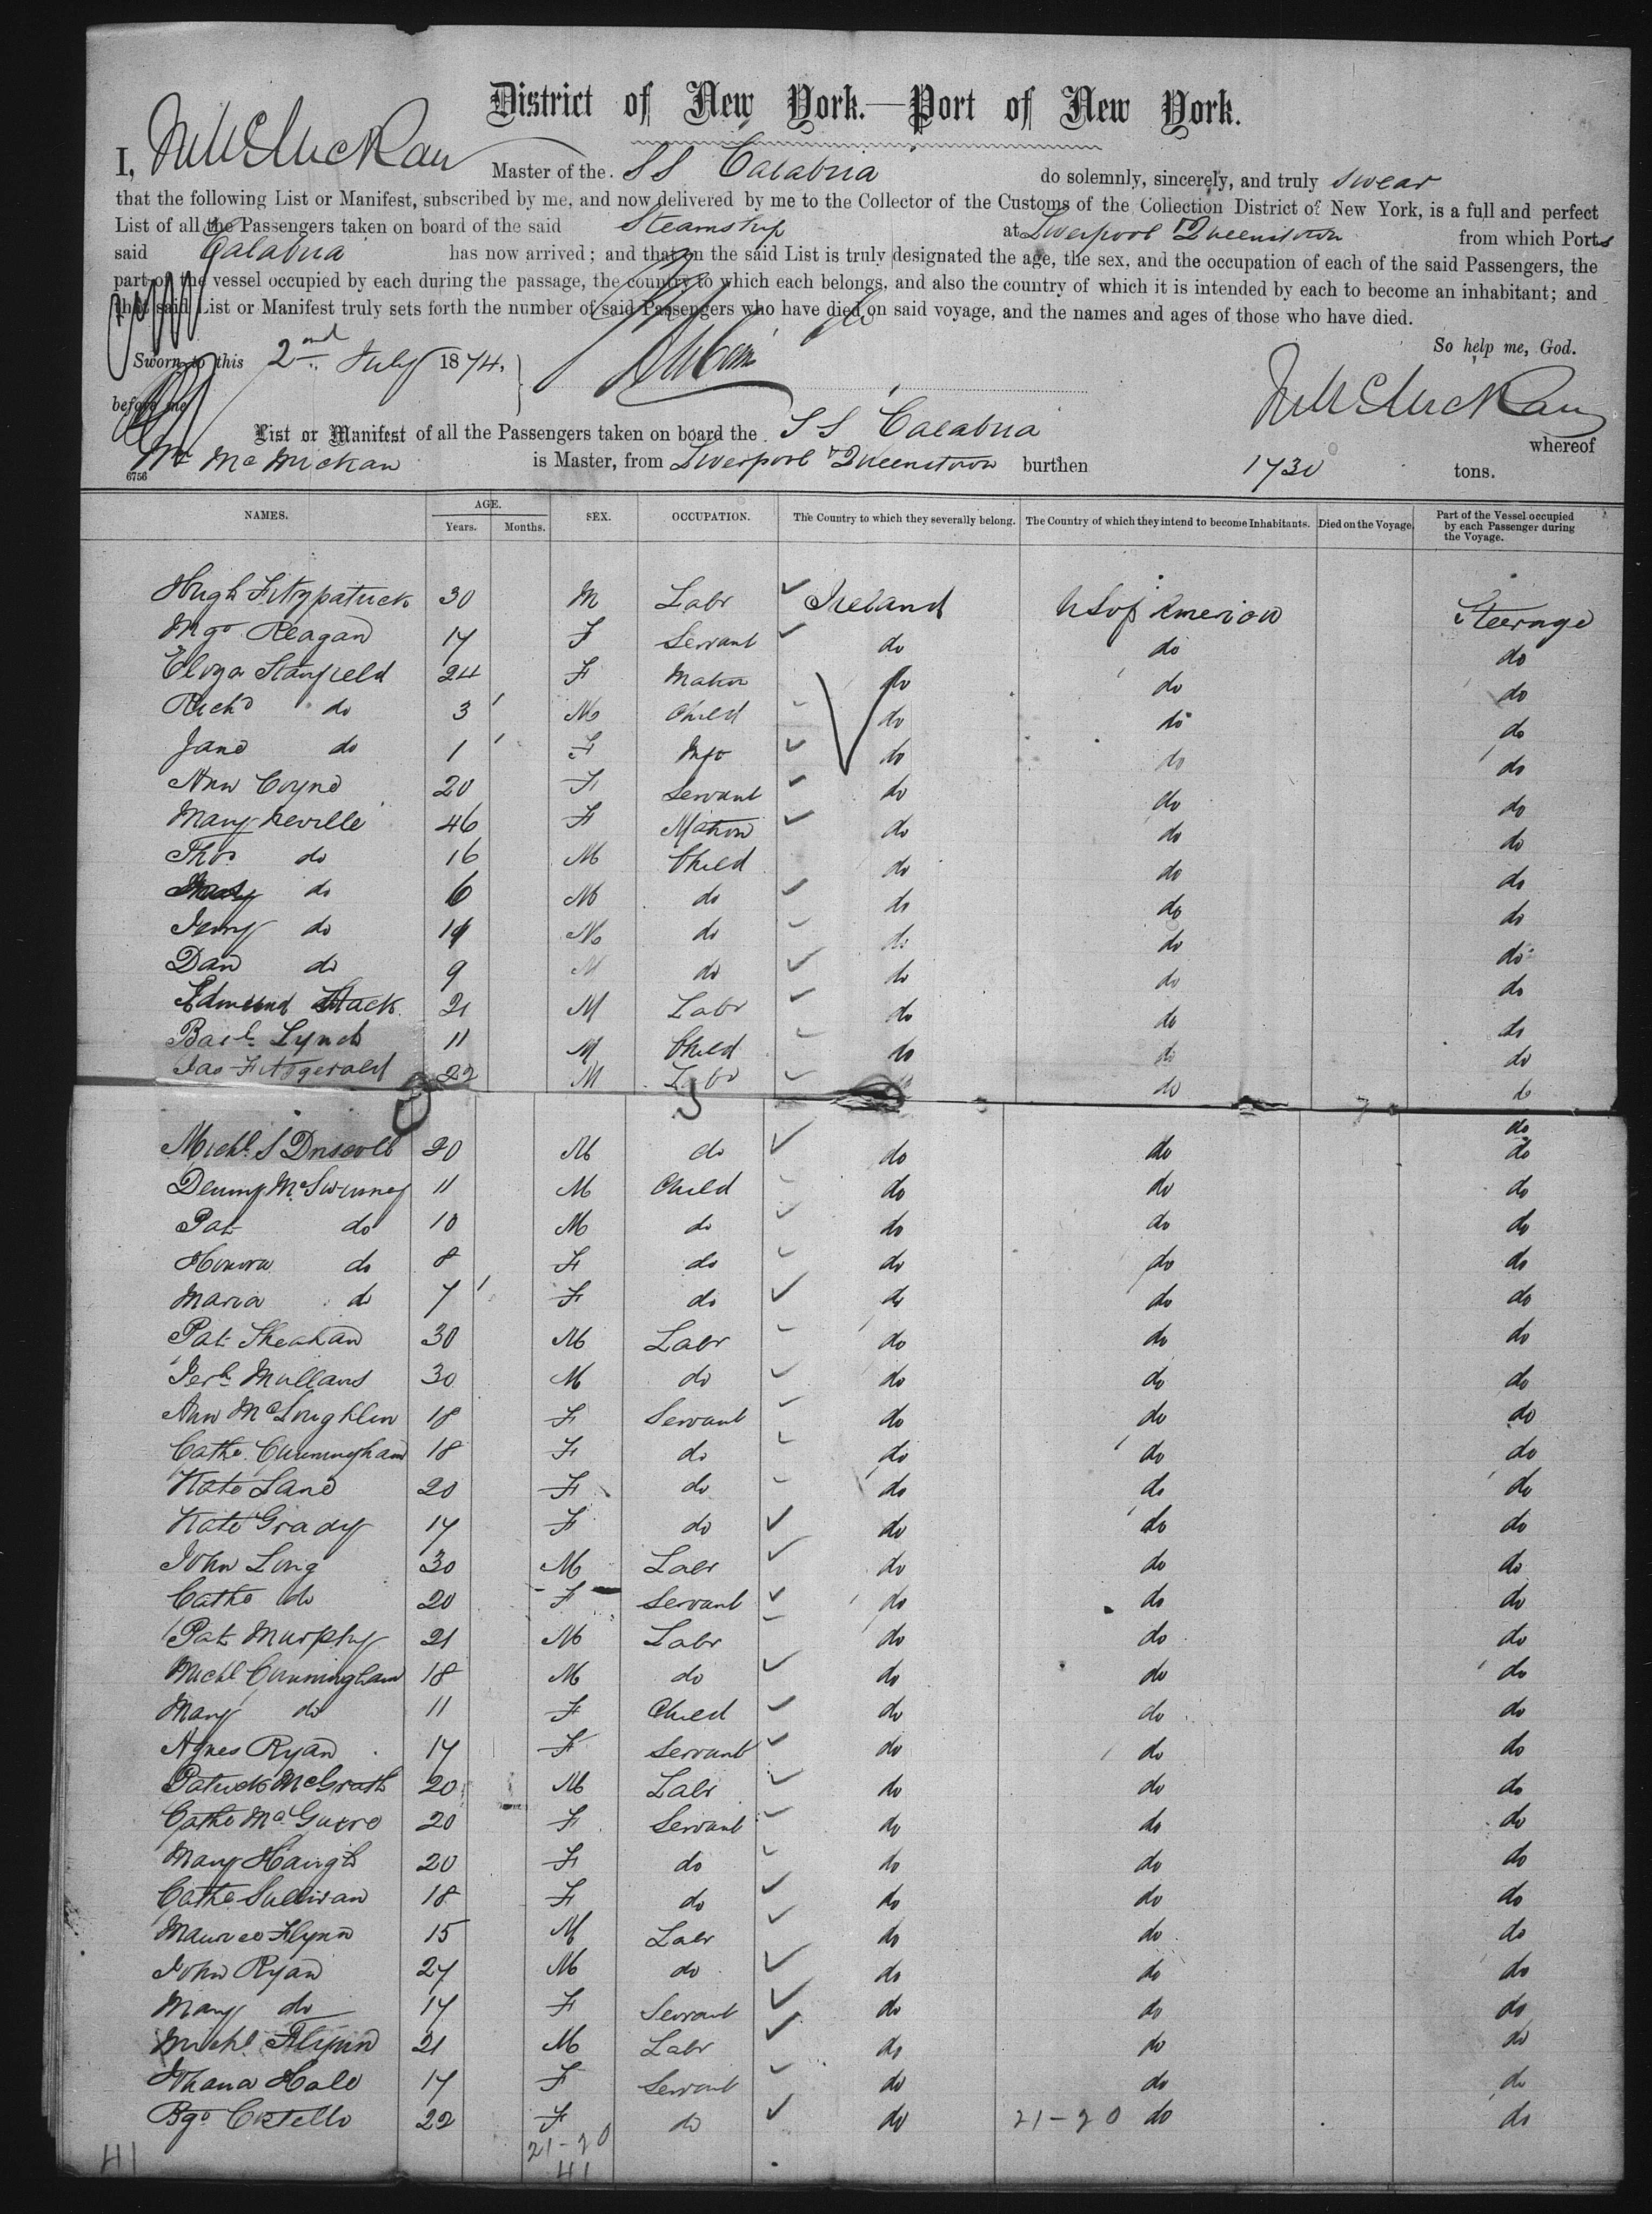 District of New York.—Port of New York.
I, Master of the SS Calabria do solemnly, sincerely, and truly swear
that the following List or Manifest, subscribed by me, and now delivered by me to the Collector of the Customs of the Collection District of New York, is a full and perfect
List of all the Passengers taken on board of the said Steamship at Liverpool & Queenstown from which Ports
said Calabria has now arrived; and that on the said List is truly designated the age, the sex, and the occupation of each of the said Passengers, the
part of the vessel occupied by each during the passage, the country to which each belongs, and also the country of which it is intended by each to become an inhabitant; and
that said List or Manifest truly sets forth the number of said Passengers who have died on said voyage, and the names and ages of those who have died.
So help me, God.
Sworn to this 2nd July 1874,
before me
List or Manifest of all the Passengers taken on board the SS Calabria whereof
Mc Mickan is Master, from Liverpool & Queenstown burthen 1730 tons.
6756
NAMES. AGE. Years. Months. SEX. OCCUPATION. The Country to which they severally belong. The Country of which they intend to become Inhabitants. Died on the Voyage. Part of the Vessel occupied by each Passenger during the Voyage.
Hugh Fitzpatrick 30 M Labr Ireland US of America Steerage
Mgt Reagan 17 F Servant do do do
Eliza Stanfield 24 F Matron do do do
Richd do 3 M Child do do do
Jane do 1 F Inft do do do
Ann Coyne 20 F Servant do do do
Mary Neville 46 F Matron do do do
Thos do 16 M Child do do do
do 6 M do do do do
Jerry do 14 M do do do do
Dan do 9 M do do do do
Edmund Stack 21 M Labr do do do
Bart Lynch 11 M Child do do do
Jas Fitzgerald 22 M Labr do do
do
Michl S Driscoll 20 M do do do do
Denny McSwinney 11 M Child do do do
Pat do 10 M do do do do
Honora do 8 F do do do do
Maria do 7 F do do do do
Pat Sheahan 30 M Labr do do do
Jerh Mullans 30 M do do do do
Ann McLoughlin 18 F Servant do do do
Cathe Cunningham 18 F do do do do
Kate Lane 20 F do do do do
Kate Grady 17 F do do do do
John Ling 30 M Labr do do do
Cathe do 20 F Servant do do do
Pat Murphy 21 M Labr do do do
Michl Cunningham 18 M do do do do
Mary do 11 F Child do do do
Agnes Ryan 17 F Servant do do do
Patrick McGrath 20 M Labr do do do
Cathe McGuire 20 F Servant do do do
Mary Haugh 20 F do do do do
Cathe Sullivan 18 F do do do do
Maurice Flynn 15 M Labr do do do
John Ryan 27 M do do do do
Mary do 17 F Servant do do do
Michl Flynn 21 M Labr do do do
Johana Hale 17 F Servant do do do
Bgt Costello 22 F do do 21-20 do do
21-20
41 41